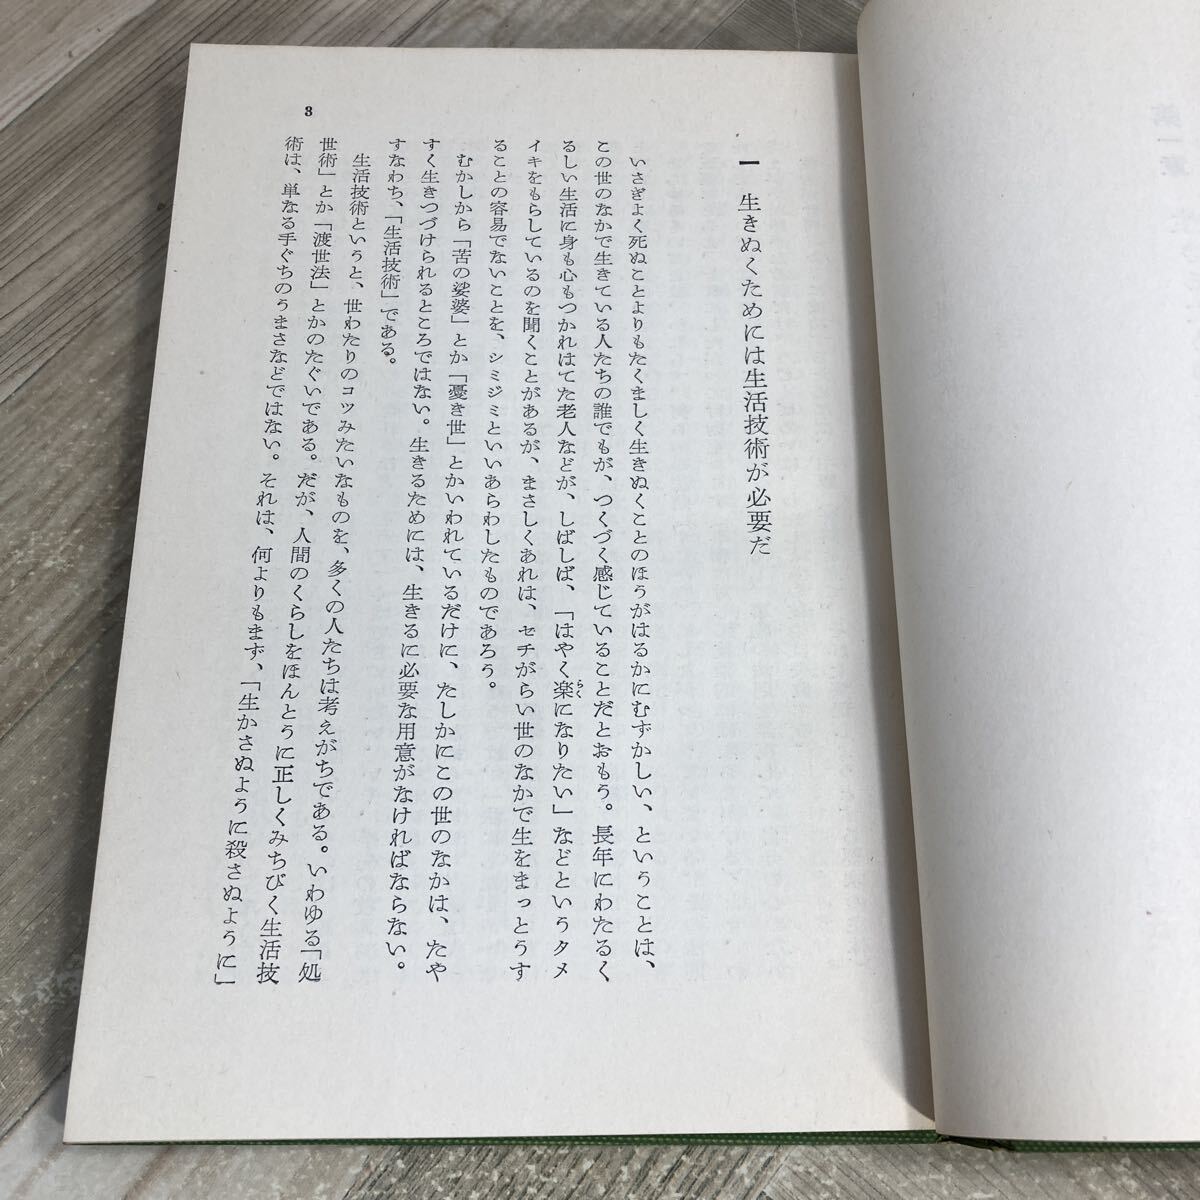 一　生きぬくためには生活技術が必要だ
いさぎよく死ぬことよりもたくましく生きぬくことのほうがはるかにむずかしい、ということは、
この世のなかで生きている人たちの誰でもが、つくづく感じていることだとおもう。長年にわたるく
るしい生活に身も心もつかれはてた老人などが、しばしば、「はやく楽になりたい」などというタメ
らく
イキをもらしているのを聞くことがあるが、まさしくあれは、セチがらい世のなかで生をまっとうす
ることの容易でないことを、シミジミといいあらわしたものであろう。
むかしから「苦の娑婆」とか「憂き世」とかいわれているだけに、たしかにこの世のなかは、たや
すく生きつづけられるところではない。生きるためには、生きるに必要な用意がなければならない。
すなわち、「生活技術」である。
生活技術というと、世わたりのコツみたいなものを、多くの人たちは考えがちである。いわゆる「処
世術」とか「渡世法」とかのたぐいである。だが、人間のくらしをほんとうに正しくみちびく生活技
術は、単なる手ぐちのうまさなどではない。それは、何よりもまず、「生かさぬように殺さぬように」
3